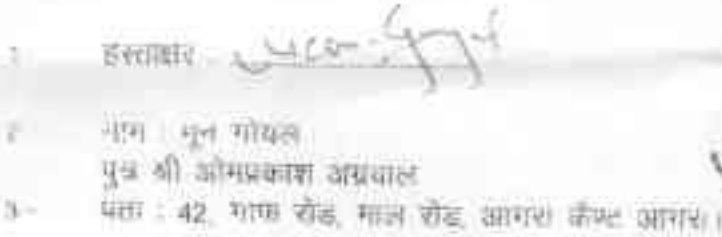 1 हस्ताक्षर -
2- नाम : मून गोयल
पुत्र श्री ओमप्रकाश अग्रवाल
3- पता : 42, गाफ रोड, माल रोड, आगरा कैण्ट आगरा।